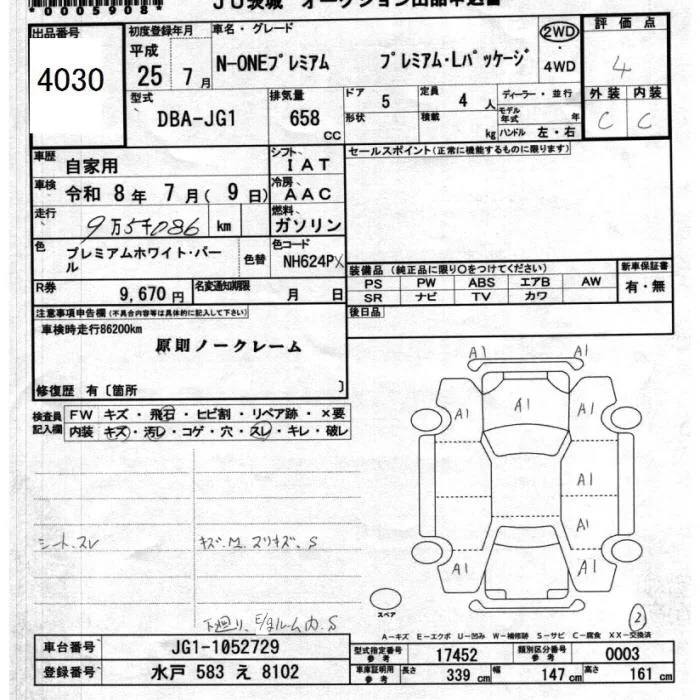 *0005908*
JU茨城 オークション出品申込書
出品番号
4030
初度登録年月
平成
25 7月
車名・グレード
N-ONEプレミアム プレミアム・Lパッケージ
2WD
・
4WD
評価点
4
外装 内装
C C
型式
DBA-JG1
排気量
658
CC
ドア
5
形状
定員
4 人
積載
kg
ディーラー・並行
モデル年式 年
ハンドル 左・右
車歴
自家用
シフト
IAT
車検
令和 8年 7月( 9日)
冷房
AAC
走行
9万5千086 km
燃料
ガソリン
色
プレミアムホワイト・パール
色替
色コード
NH624PX
R券
9,670円
名変通知期限
月 日
セールスポイント(正常に機能するものに限ります)
装備品(純正品に限り〇をつけてください)
PS PW ABS エアB AW
SR ナビ TV カワ
新車保証書
有・無
後日品
注意事項申告欄(不具合内容等は具体的に記入して下さい)
車検時走行86200km
原則ノークレーム
修復歴 有〔箇所 〕
検査員記入欄
FW キズ・飛石・ヒビ割・リペア跡・×要
内装 キズ・汚レ・コゲ・穴・スレ・キレ・破レ
シート.スレ
キズ.M.スリキズ.S
下廻り、E/gルーム内.S
A1 A1
A1 A1 A1
A1
A1
A1 A1
スペア
2
A-キズ E-エクボ U-凹み W-補修跡 S-サビ C-腐食 XX-交換済
車台番号 JG1-1052729
登録番号 水戸 583 え 8102
型式指定番号 参考 17452
類別区分番号 参考 0003
車庫証明用 参考 長さ 339 cm 幅 147 cm 高さ 161 cm